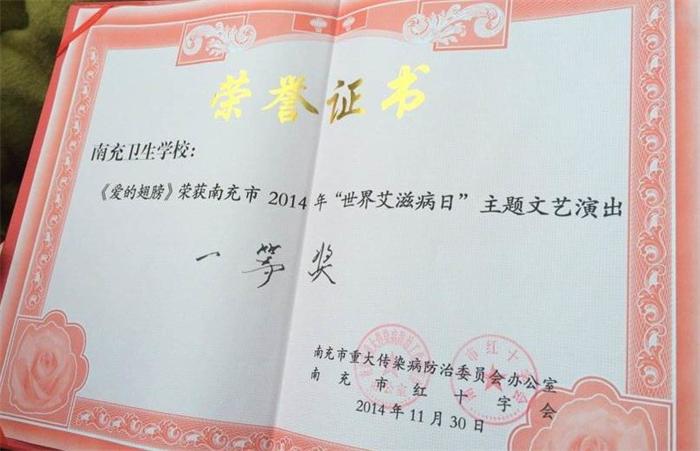 荣誉证书
南充卫生学校：
《爱的翅膀》荣获南充市 2014 年 “世界艾滋病日” 主题文艺演出
一等奖
南充市重大传染病防治委员会办公室
南充市红十字会
2014 年 11 月 30 日